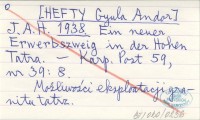 [HEFTY Gyula Andor]
J. A. H. 1938 Ein neuer
Erwerbszweig in der Hohen
Tatra. — Karp. Post 59,
nr 39: 8.
Możliwości eksploatacji gra-
nitu tatrz.